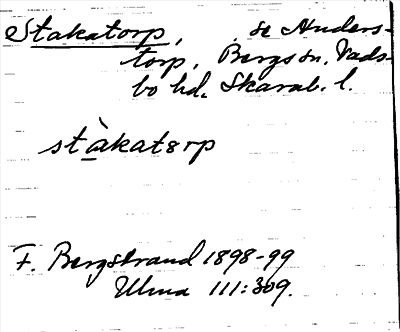 Stakatorp, se Anders-
torp, Bergs sn, Vads-
bo hd. Skarab. l.
stàkatɘrp
F. Bergstrand 1898-99
Ulma 111:309.